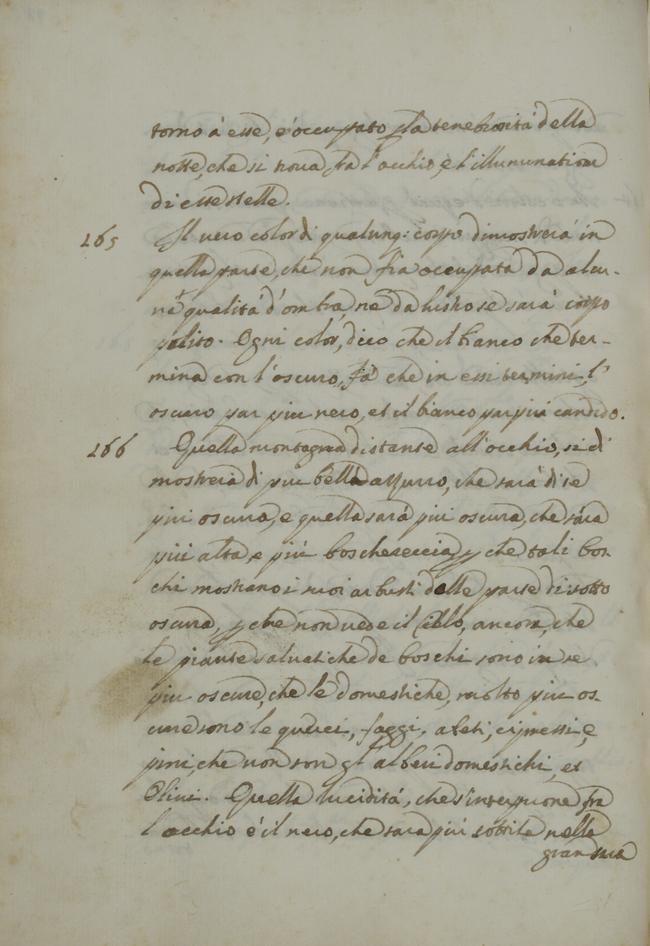 torno à esse, è occupato p la tenebrosità della
notte, che si troua fra l'occhio e l'illuminatione
di esse stelle.
265 Il uero color di qualunq: corpo dimostrerà in
quella parte, che non fia occupata da alcu-
na qualità d'ombra, ne da lustro se sarà corpo
polito. Ogni color, dico che il bianco che ter-
mina con l'oscuro, fà che in essi termini l'
oscuro par piu nero, et il bianco par più candido.
266 Quella montagna distante all'occhio, si di
mostrerà di piu bello azzurro, che sarà di se
più oscura, e quella sarà più oscura, che sarà
più alta e più boschereccia, p che tali bos-
chi mostrano i suoi arbusti dalle parte di sotto
oscura, p che non uede il Cielo, ancora, che
le piante saluatiche de boschi sono in se
piu oscure, che le domestiche, molto piu os-
cure sono le querci, faggi, abeti, cipressi, e
pini, che non son gl' alberi domestichi, et
Oliui. Quella luciditá, che s'interpone fra
l'occhio è il nero, che sara più sottile nella
gran sua